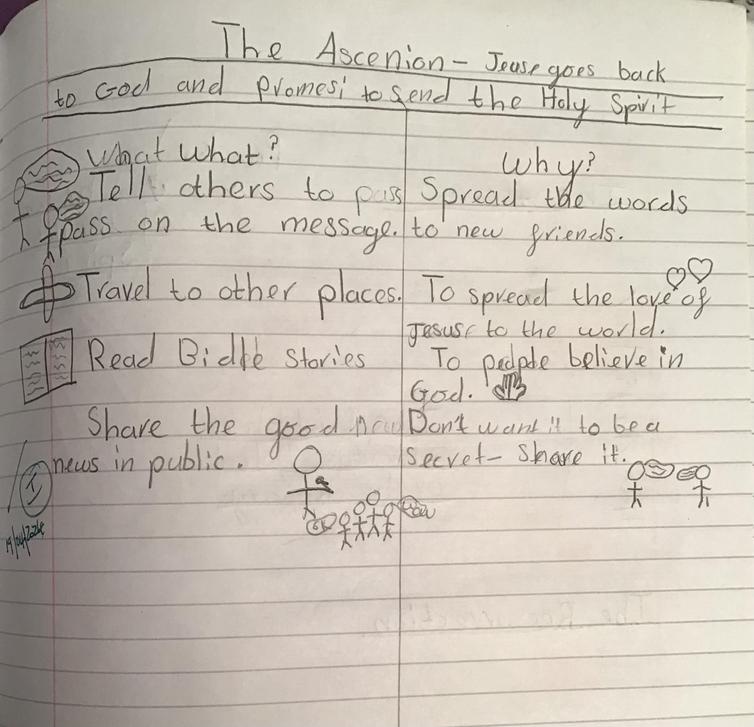 The Ascenion - Jeuse goes back
to God and promesi to send the Holy Spirit
What What?
Tell others to pass
pass on the message.
Travel to other places.
Read Bidle Stories
Share the good
news in public.
Why?
Spread the words
to new friends.
To spread the love of
Jesus to the world.
To believe in
God.
Don't want it to be a
secret- Share it.